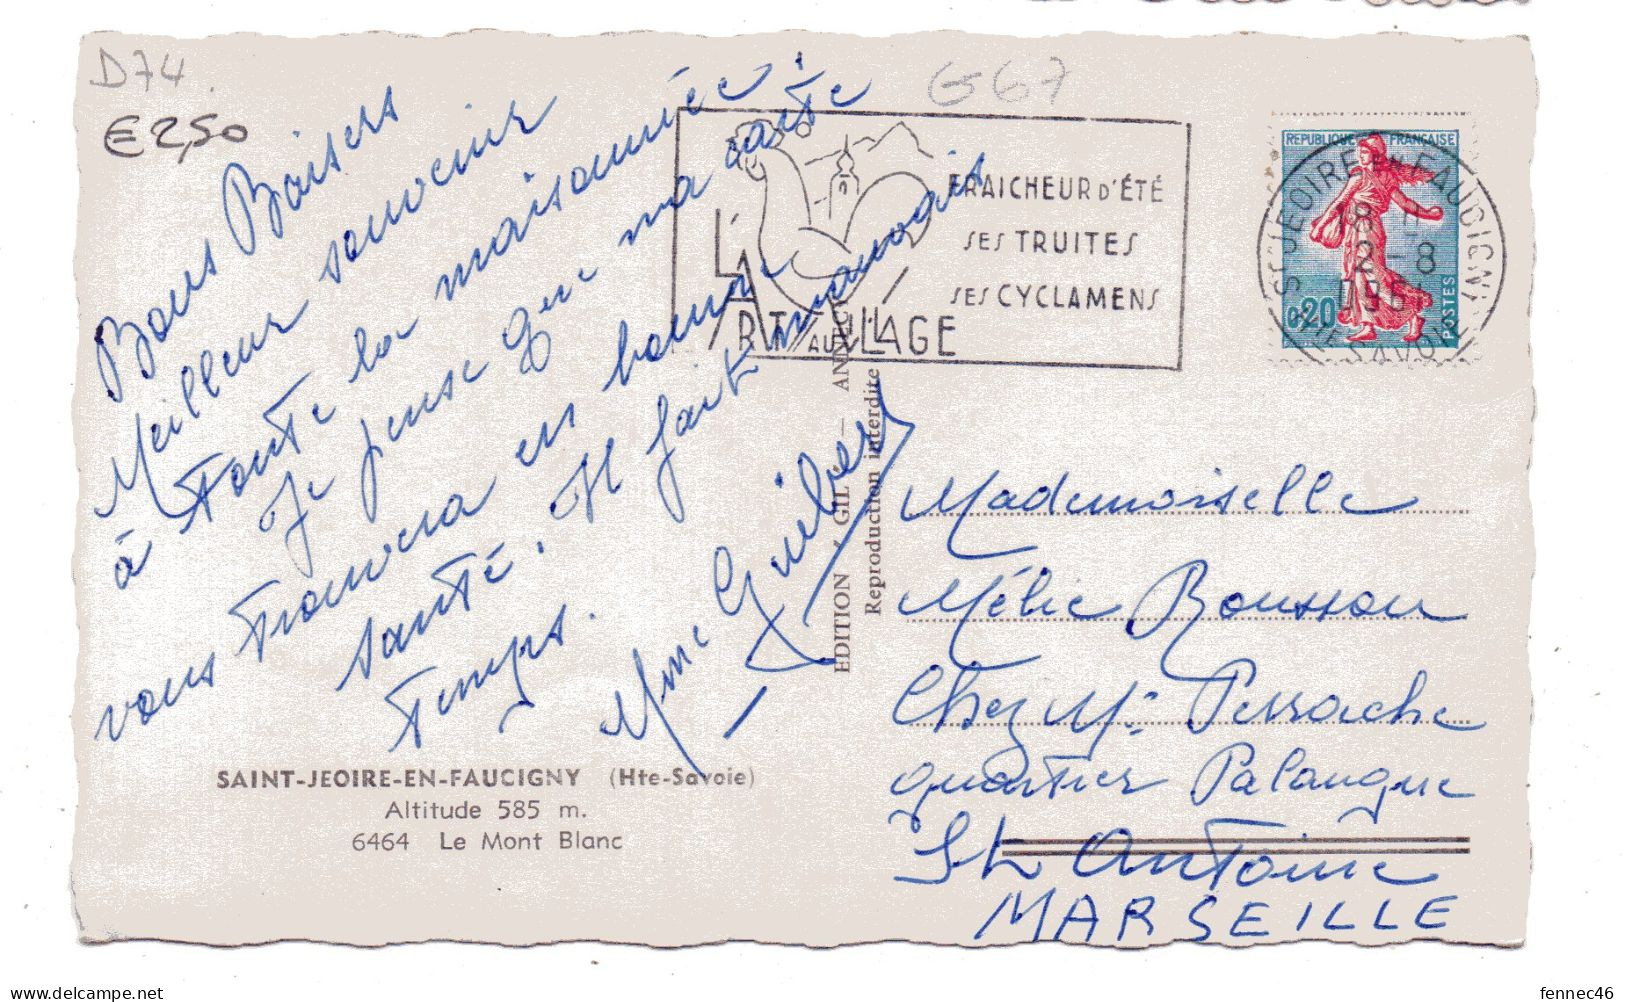 D74
€2,50
G67
Bons Baisers
Meilleur souvenir
à toute la maisonnée.
Je pense que ma carte
vous trouvera en bonne
santé. Il fait mauvais
temps.
Mme Guibert
SAINT-JEOIRE-EN-FAUCIGNY (Hte-Savoie)
Altitude 585 m.
6464 Le Mont Blanc
EDITION GIL - ANNECY
Reproduction interdite
L'ART AU VILLAGE
FRAICHEUR D'ÉTÉ
SES TRUITES
SES CYCLAMENS
REPUBLIQUE FRANÇAISE
0,20
POSTES
ST JEOIRE EN FAUCIGNY
18 H
2-8
1961
HTE SAVOIE
Mademoiselle
Mélie Bousson
Chez Mr Perrache
quartier Palangue
St Antoine
MARSEILLE
fennec46